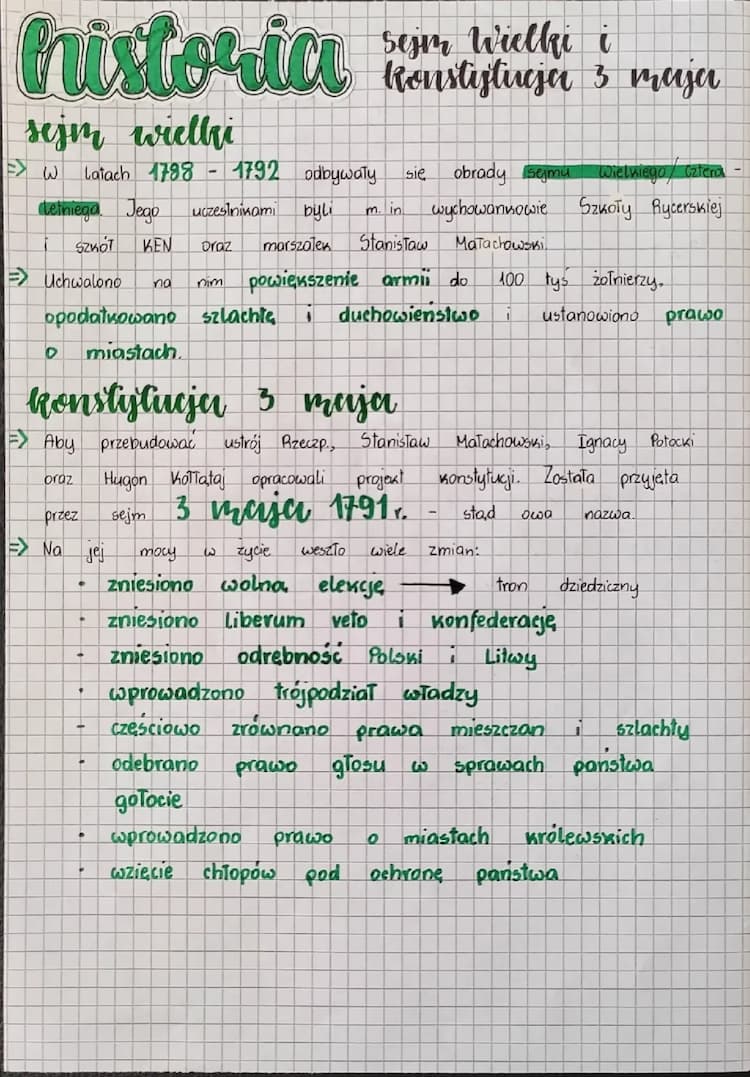 historia
sejm Wielki i
konstytucja 3 maja
sejm wielki
⇒ W latach 1788 - 1792 odbywały się obrady sejmu Wielkiego/Cztero-
letniego. Jego uczestnikami byli m. in. wychowankowie Szkoły Rycerskiej
i szkół KEN oraz marszałek Stanisław Małachowski.
⇒ Uchwalono na nim powiększenie armii do 100 tyś żołnierzy,
opodatkowano szlachtę i duchowieństwo i ustanowiono prawo
o miastach.
konstytucja 3 maja
⇒ Aby przebudować ustrój Rzeczp., Stanisław Małachowski, Ignacy Potocki
oraz Hugon Kołłataj opracowali projekt konstytucji. Została przyjeta
przez sejm 3 maja 1791 r. - stąd owa nazwa.
⇒ Na jej mocy w życie weszło wiele zmian:
• zniesiono wolną elekcję → tron dziedziczny
• zniesiono liberum veto i konfederację
- zniesiono odrębność Polski i Litwy
• wprowadzono trójpodział władzy
- częściowo zrównano prawa mieszczan i szlachty
• odebrano prawo głosu w sprawach państwa
gołocie
• wprowadzono prawo o miastach królewskich
• wzięcie chłopów pod ochronę państwa